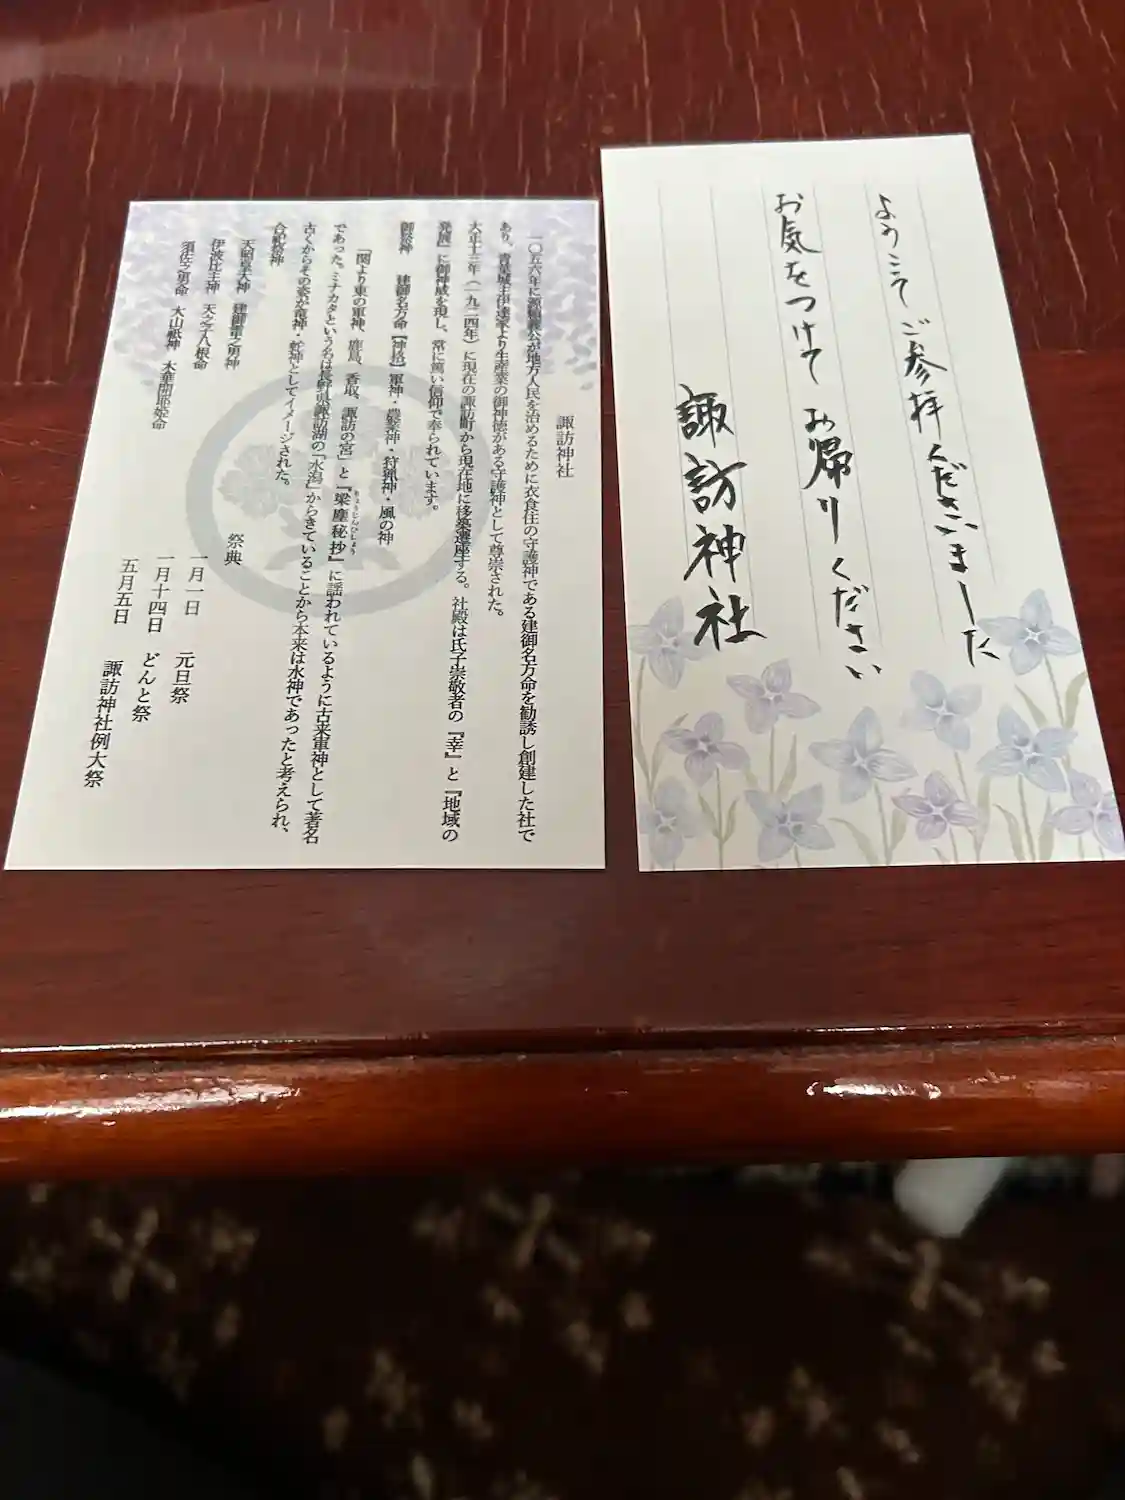 ようこそご参拝くださいました
お気をつけて お帰りください
諏訪神社
諏訪神社
一〇五六年に源頼義公が地方人民を治めるために衣食住の守護神である建御名方命を勧誘し創建した社で
あり、青葉城主伊達家より生産業の御神徳がある守護神として尊崇された。
大正十三年(一九二四年)に現在の諏訪町から現在地に移築遷座する。社殿は氏子崇敬者の『幸』と『地域の
発展』に御神威を現し、常に篤い信仰で奉られています。
御祭神 建御名方命【神格】軍神・農業神・狩猟神・風の神
「関より東の軍神、鹿島、香取、諏訪の宮」と『梁塵秘抄』に謡われているように古来軍神として著名
りょうじんひしょう
であった。ミナカタという名は長野県諏訪湖の「水潟」からきていることから本来は水神であったと考えられ、
古くからその姿が竜神・蛇神としてイメージされた。
合祀祭神
天照皇大神 建御雷之男神
伊波比主神 天之子八根命
須佐之男命 大山祇神 木華開耶姫命
祭典
一月一日 元旦祭
一月十四日 どんと祭
五月五日 諏訪神社例大祭